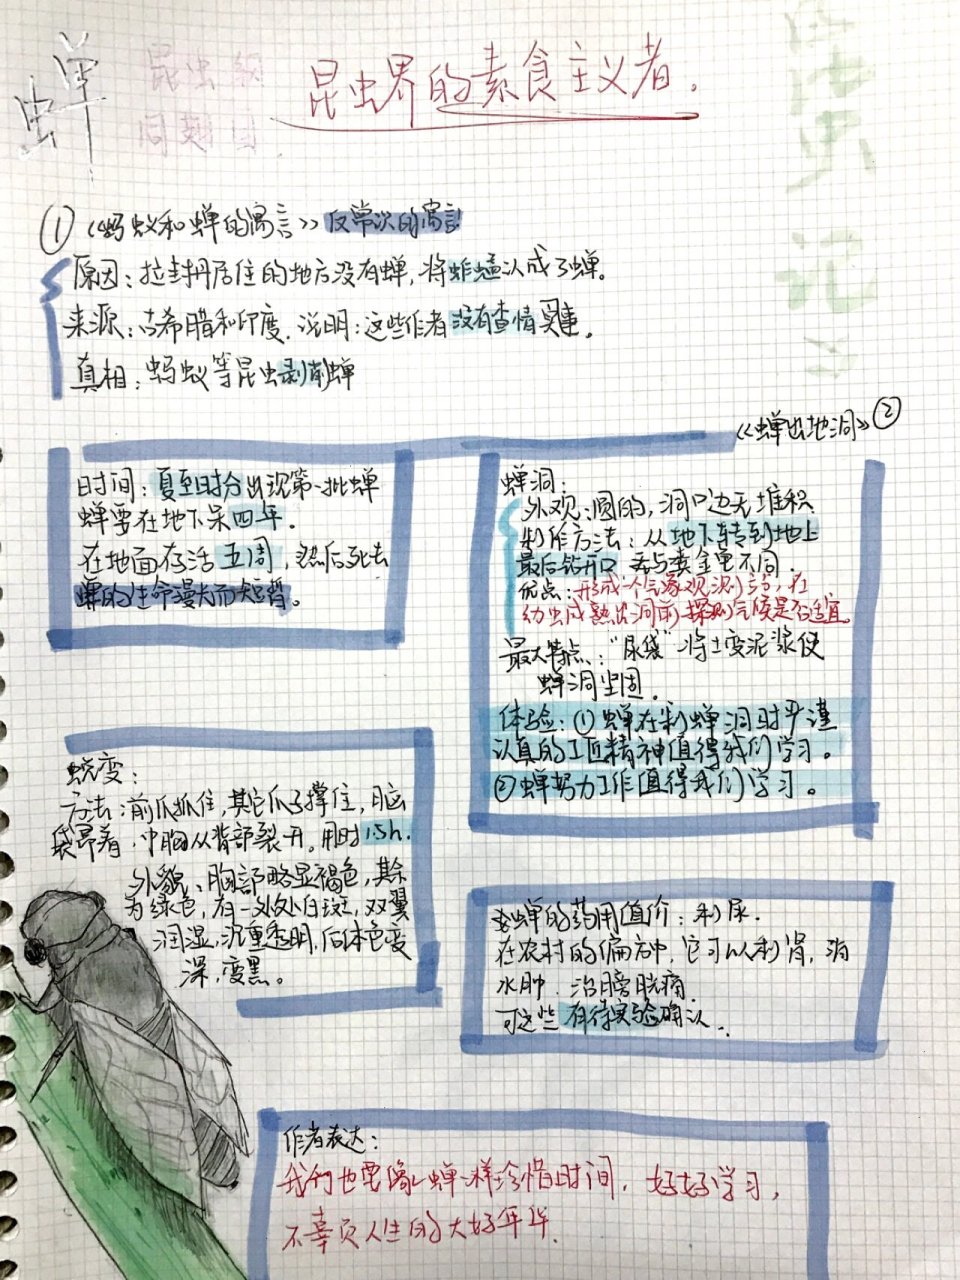 蝉
昆虫界的素食主义者。
① 《蚂蚁和蝉的寓言》反常次的寓言
原因：拉封丹居住的地方没有蝉，将蚱蜢认成了蝉。
来源：古希腊和印度. 说明：这些作者没有查情冥事。
真相：蚂蚁等昆虫剥削蝉
《蝉出地洞》②
时间：夏至时分出现第一批蝉
蝉要在地下呆四年.
在地面存活五周，然后死去
蝉的生命漫长而短暂。
蝉洞：
外观：圆的，洞口边无堆积
制作方法：从地下转到地上
最后钻开口 与粪金龟不同.
优点：形成一个气象观测站，在
幼虫成熟出洞前探测气候是否适宜。
最大特点："尿袋"将土变泥浆使
蝉洞坚固.
体验：①蝉在制蝉洞时严谨
认真的工匠精神值得我们学习。
②蝉努力工作值得我们学习。
蜕变：
方法：前爪抓住，其它爪子撑住，脑
袋昂着，中胸从背部裂开。用时
外貌：胸部略显褐色，其余
为绿色，有一处处白斑，双翼
润湿，沉重透明，后体色变
深，变黑。
蝉的药用值价：利尿.
在农村的偏方中，它可以利肾，消
水肿. 治膀胱痛.
可这些有待实验确认.
作者表达：
我们也要像蝉一样珍惜时间，好好学习，
不辜负人生的大好年华.